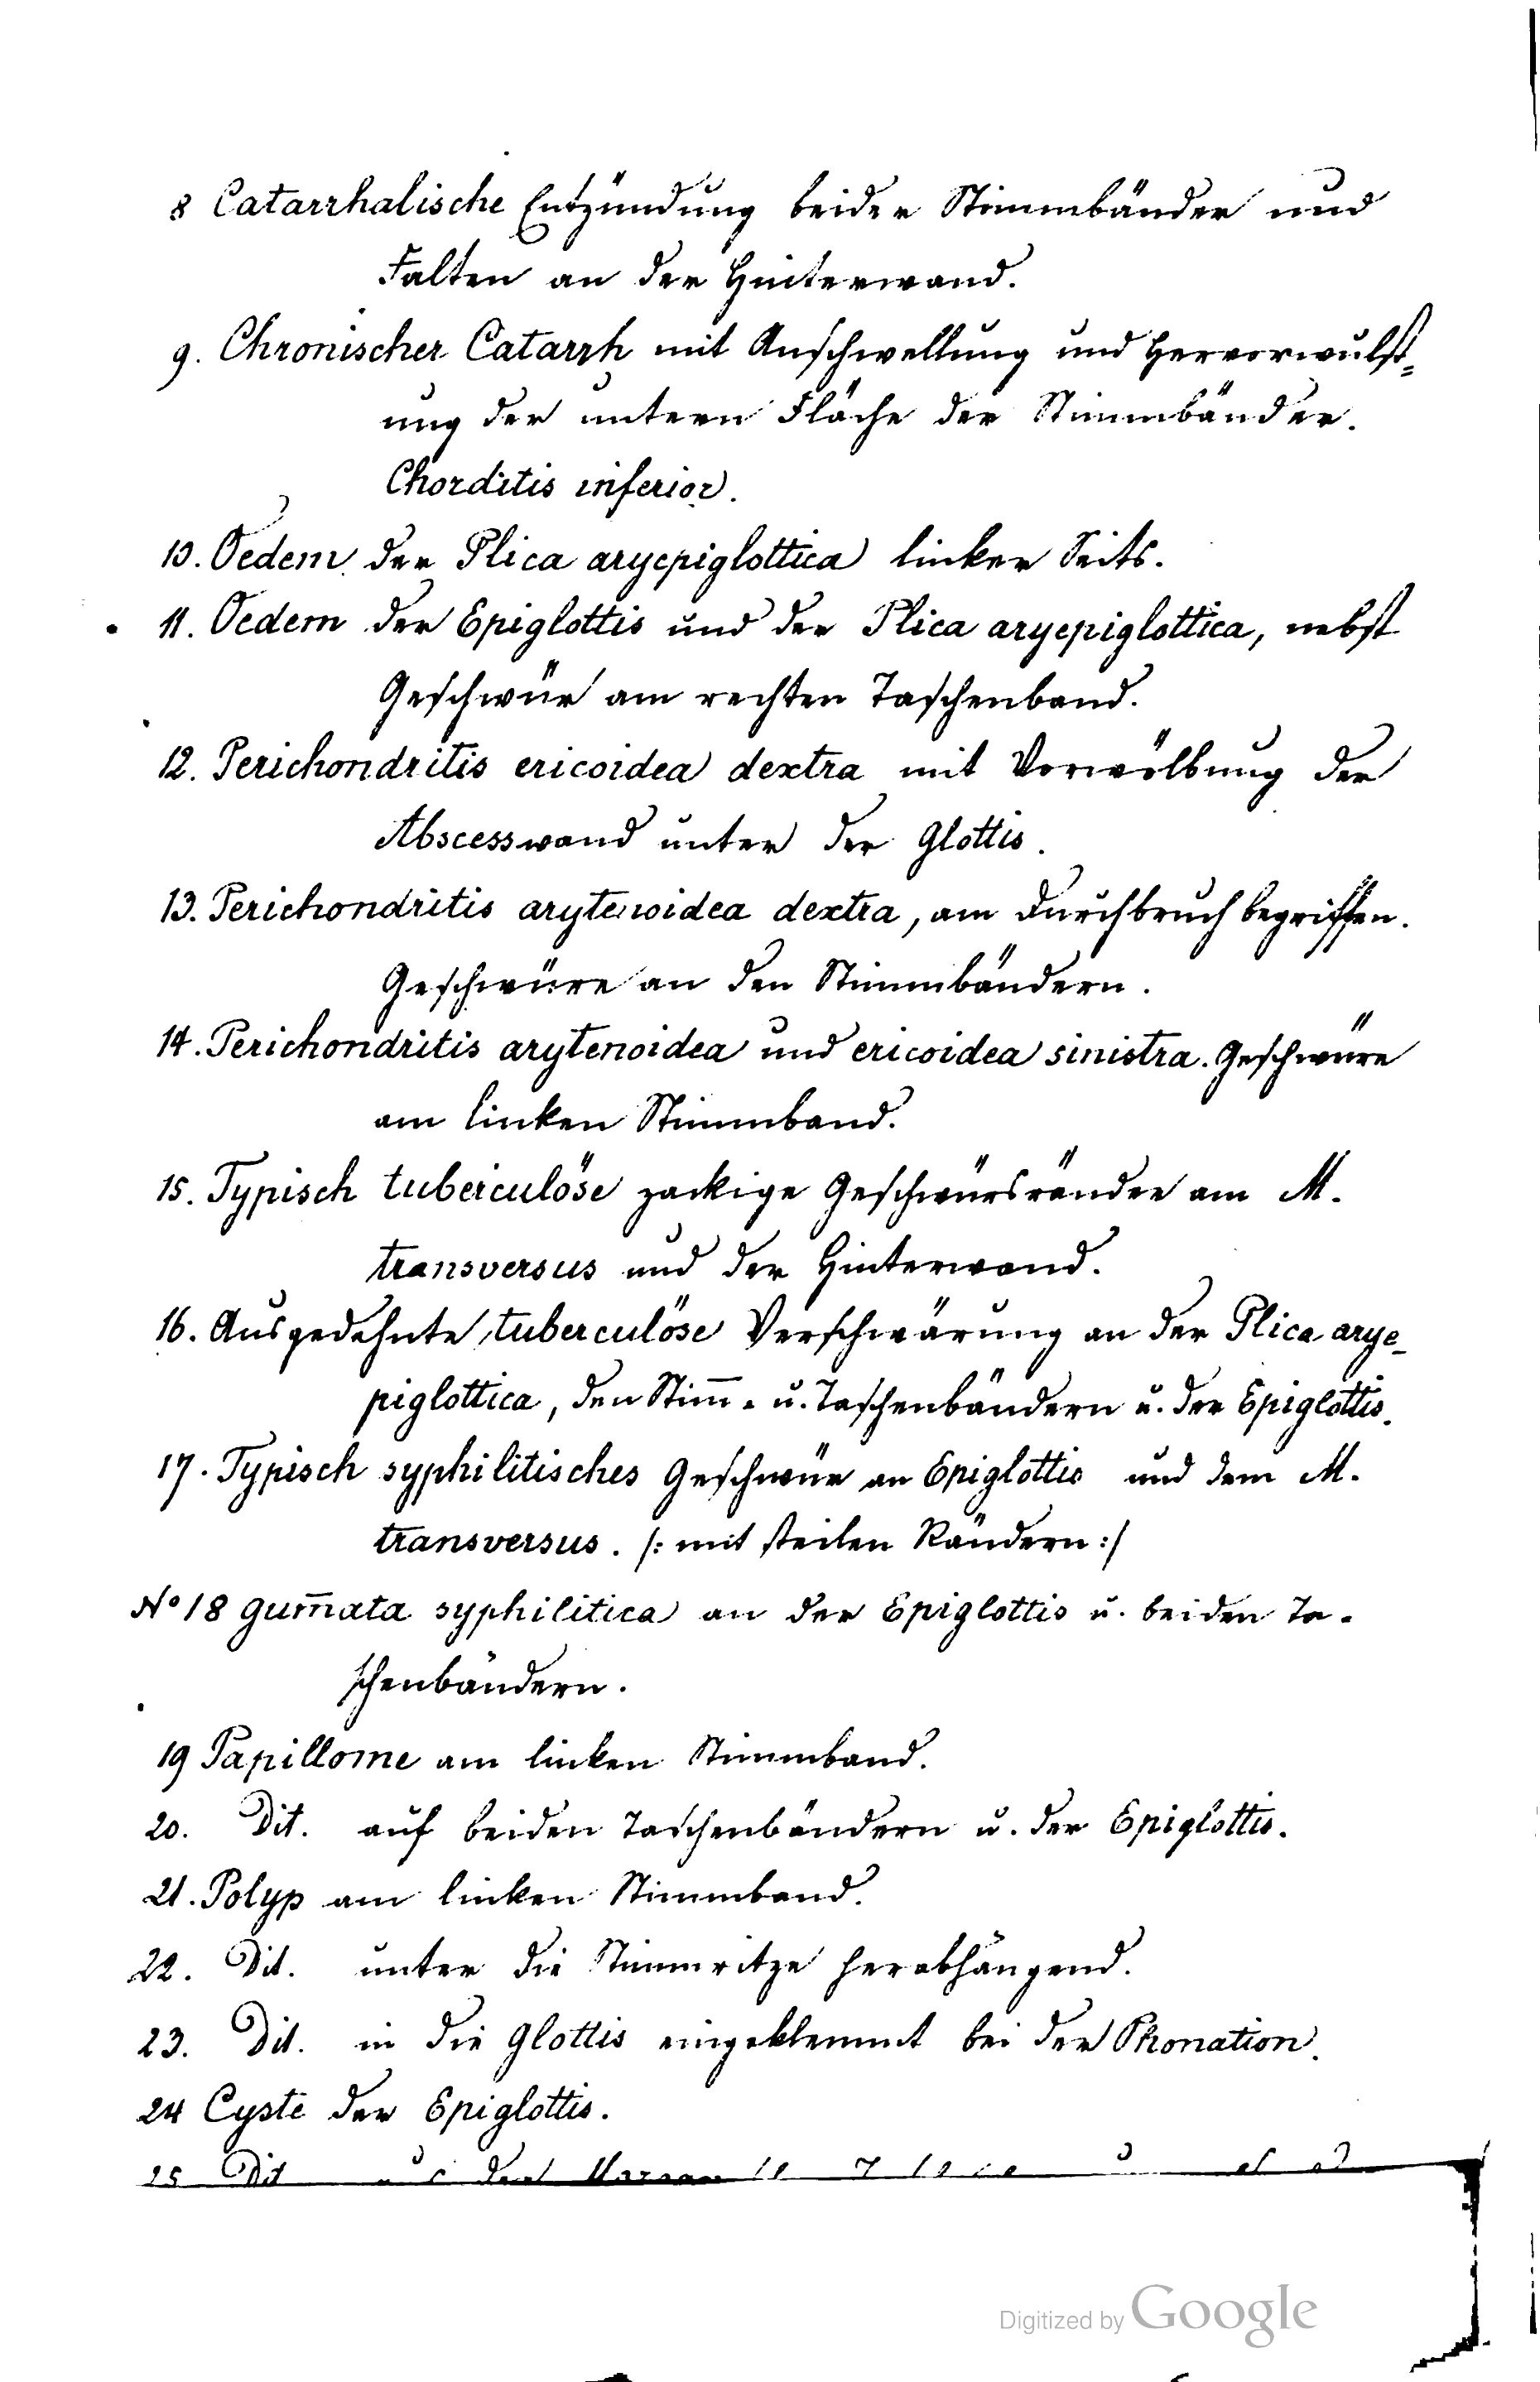 8 Catarrhalische Entzündung beider Stimmbänder und
Falten an der Hinterwand.
9. Chronischer Catarrh mit Anschwellung und Hervorwulst=
ung der untern Fläche der Stimmbänder.
Chorditis inferior.
10. Oedem der Plica aryepiglottica linker Seits.
11. Oedem der Epiglottis und der Plica aryepiglottica, nebst
Geschwür am rechten Taschenband.
12. Perichondritis cricoidea dextra mit Vorwölbung der
Abscesswand unter der Glottis.
13. Perichondritis arytenoidea dextra, am Durchbruch begriffen.
Geschwüre an den Stimmbändern.
14. Perichondritis arytenoidea und cricoidea sinistra. Geschwüre
am linken Stimmband.
15. Typisch tuberculöse zackige Geschwürsränder am M.
transversus und der Hinterwand.
16. Ausgedehnte tuberculöse Verschwärung an der Plica arye-
piglottica, den Stim̄- u. Taschenbändern u. der Epiglottis.
17. Typisch syphilitisches Geschwür an Epiglottis und dem M.
transversus. /: mit steilen Rändern :/
No 18 Gum̄ata syphilitica an der Epiglottis u. beiden Ta-
schenbändern.
19 Papillome am linken Stimmband.
20. Dit. auf beiden Taschenbändern u. der Epiglottis.
21. Polyp am linken Stimmband.
22. Dit. unter die Stimmritze herabhängend.
23. Dit. in die Glottis eingeklemmt bei der Phonation.
24 Cyste der Epiglottis.
25 Dit
Digitized by Google